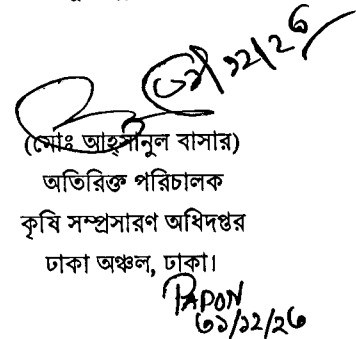 ৩১/১২/২৬
(মোঃ আহ্সানুল বাসার)
অতিরিক্ত পরিচালক
কৃষি সম্প্রসারণ অধিদপ্তর
ঢাকা অঞ্চল, ঢাকা।
PAPON
৩১/১২/২৬